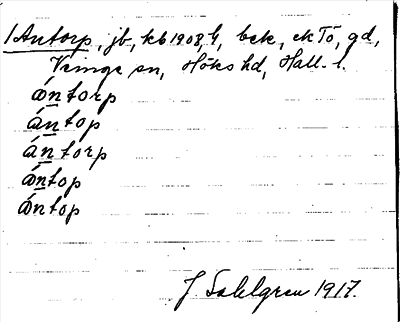 1 Antorp, jb, kb 1908, G, bek, ek Tö, gd,
Veinge sn, Höks hd, Hall. l.
ántorp
ántop
ántorp
ántop
ántop
J. Sahlgren 1917.